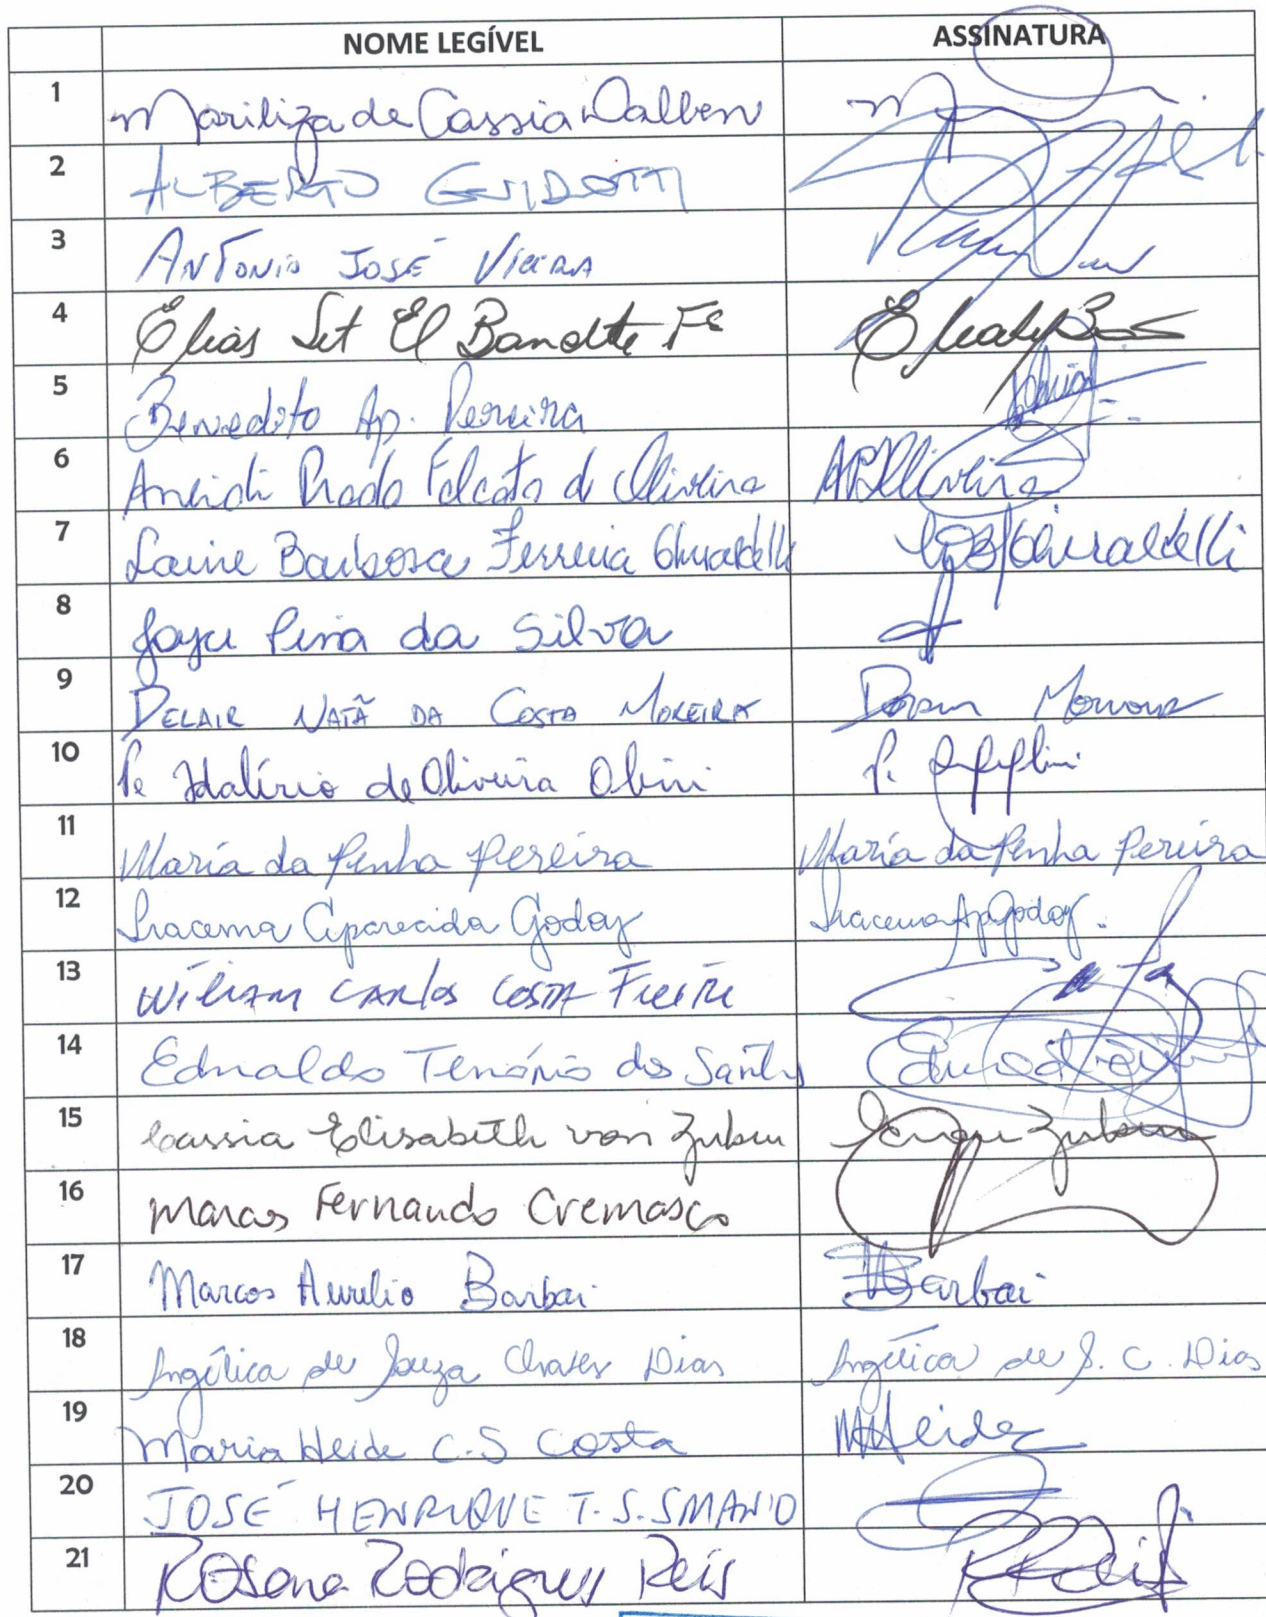 NOME LEGÍVEL ASSINATURA
1 Mariliza de Cassia Dalben
2 ALBERTO GUIDOTTI
3 ANTONIO JOSÉ VIEIRA
4 Elias Set El Bandte Fe
5 Benedito Ap. Pereira
6 Prado de Oliveira APOliveira
7 Barbosa Ferreira Ghiraldelli Ghiraldelli
8 Joyce da Silva
9 DELAIR NATÃ DA COSTA MOREIRA
10 Pe Idalírio de Oliveira Olini P.
11 Maria da Penha Pereira Maria da Penha Pereira
12 Iracema Aparecida Godoy Iracema Ap Godoy.
13 WILIAM CARLOS COSTA FREIRE
14 Ednaldo Tenório dos Santos
15 Cassia Elisabeth von Zuben Zuben
16 Marcos Fernando Cremasco
17 Marcos Aurelio Barbai Barbai
18 Angélica de Souza Chaves Dias Angélica de S. C. Dias
19 Maria Neide C.S Costa
20 JOSÉ HENRIQUE T. S. SMANIO
21 Rosana Rodrigues Reis